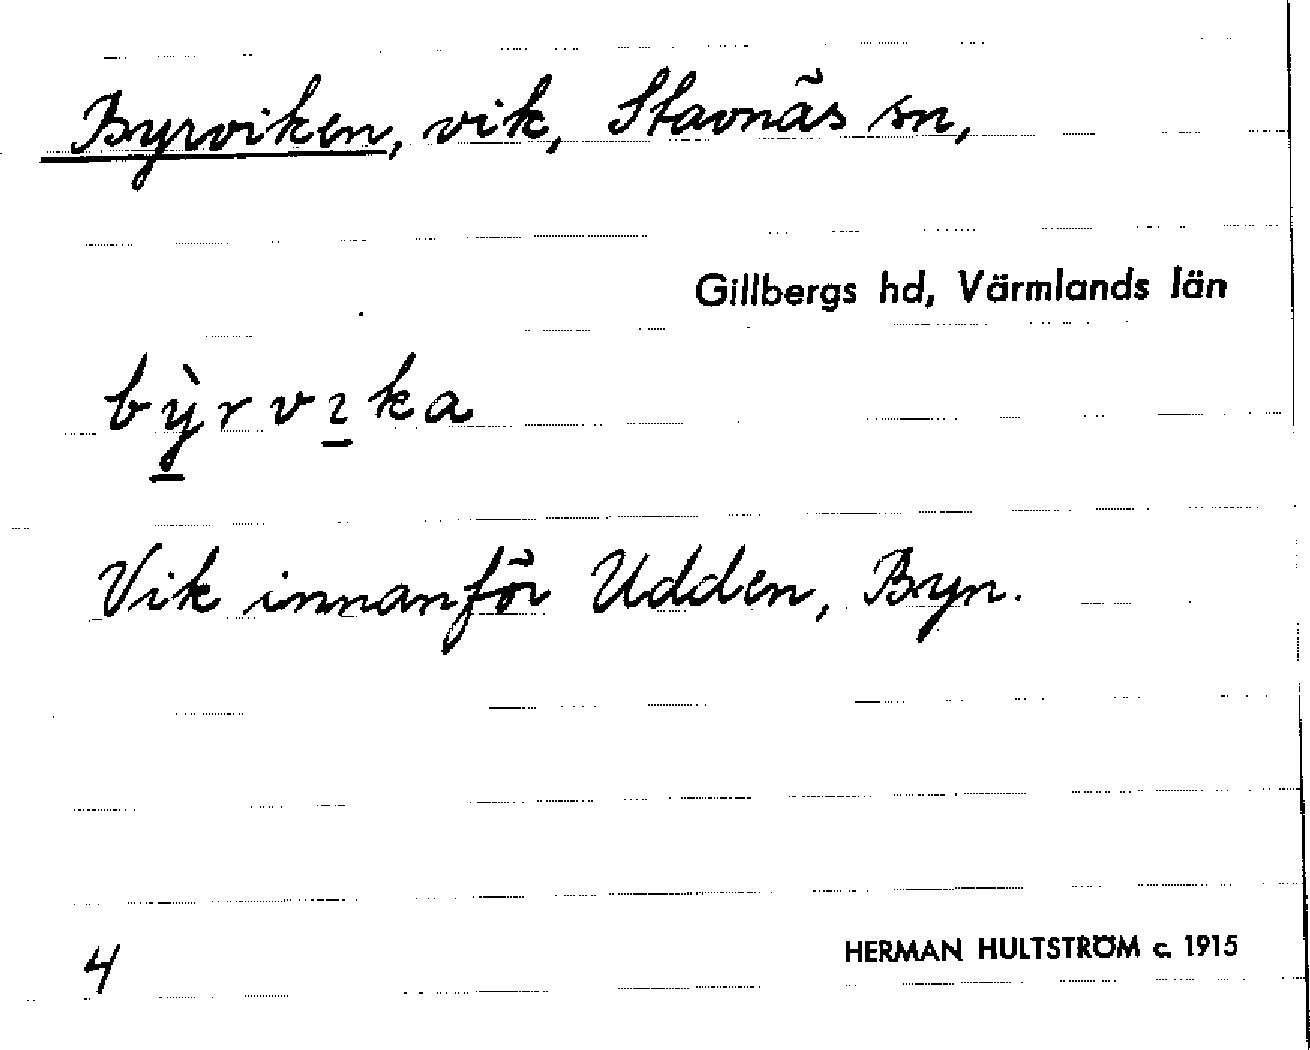 Byrviken, vik, Stavnäs sn,
Gillbergs hd, Värmlands län
bỳ̱rvı̱ka
Vik innanför Udden, Byn.
4
HERMAN HULTSTRÖM c. 1915